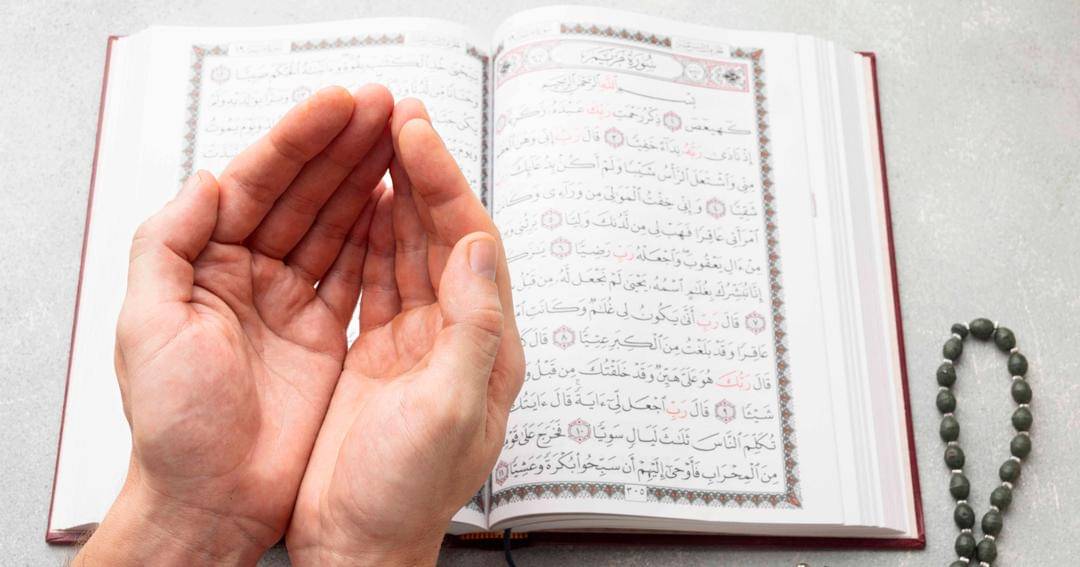 سُورَةُ مَرْيَمَ
بِسْمِ ٱللَّهِ ٱلرَّحْمَٰنِ ٱلرَّحِيمِ
كٓهيعٓصٓ ١ ذِكْرُ رَحْمَتِ رَبِّكَ عَبْدَهُۥ زَكَرِيَّآ
إِذْ نَادَىٰ رَبَّهُۥ نِدَآءً خَفِيًّا ٣ قَالَ رَبِّ إِنِّي وَهَنَ ٱلْعَظْمُ
مِنِّي وَٱشْتَعَلَ ٱلرَّأْسُ شَيْبًا وَلَمْ أَكُنۢ بِدُعَآئِكَ
شَقِيًّا ٤ وَإِنِّي خِفْتُ ٱلْمَوَٰلِيَ مِن وَرَآءِي وَكَا
ٱمْرَأَتِي عَاقِرًا فَهَبْ لِي مِن لَّدُنكَ وَلِيًّا ٥ يَرِثُنِي وَ
مِنْ ءَالِ يَعْقُوبَ وَٱجْعَلْهُ رَبِّ رَضِيًّا ٦ يَٰزَكَرِ
إِنَّا نُبَشِّرُكَ بِغُلَٰمٍ ٱسْمُهُۥ يَحْيَىٰ لَمْ نَجْعَل لَّهُۥ مِن قَبْلُ
٧ قَالَ رَبِّ أَنَّىٰ يَكُونُ لِي غُلَٰمٌ وَكَانَتِ ٱمْ
عَاقِرًا وَقَدْ بَلَغْتُ مِنَ ٱلْكِبَرِ عِتِيًّا ٨ قَالَ كَ
قَالَ رَبُّكَ هُوَ عَلَيَّ هَيِّنٌ وَقَدْ خَلَقْتُكَ مِن قَبْلُ وَ
شَيْـًٔا ٩ قَالَ رَبِّ ٱجْعَل لِّيٓ ءَايَةً قَالَ ءَايَتُكَ
تُكَلِّمَ ٱلنَّاسَ ثَلَٰثَ لَيَالٍ سَوِيًّا ١٠ فَخَرَجَ عَلَىٰ قَوْمِ
مِنَ ٱلْمِحْرَابِ فَأَوْحَىٰٓ إِلَيْهِمْ أَن سَبِّحُوا۟ بُكْرَةً وَعَشِيًّا ١١
٣٠٥
يَٰيَحْيَىٰ خُذِ ٱلْكِتَٰبَ بِقُوَّةٍ وَءَاتَيْنَٰهُ ٱلْحُكْمَ صَبِيًّا
وَحَنَانًا مِّن لَّدُنَّا وَبَرًّۢا بِوَٰلِدَيْهِ وَلَمْ
يَكُن وَيَوْمَ يَمُوتُ
وَيَوْمَ